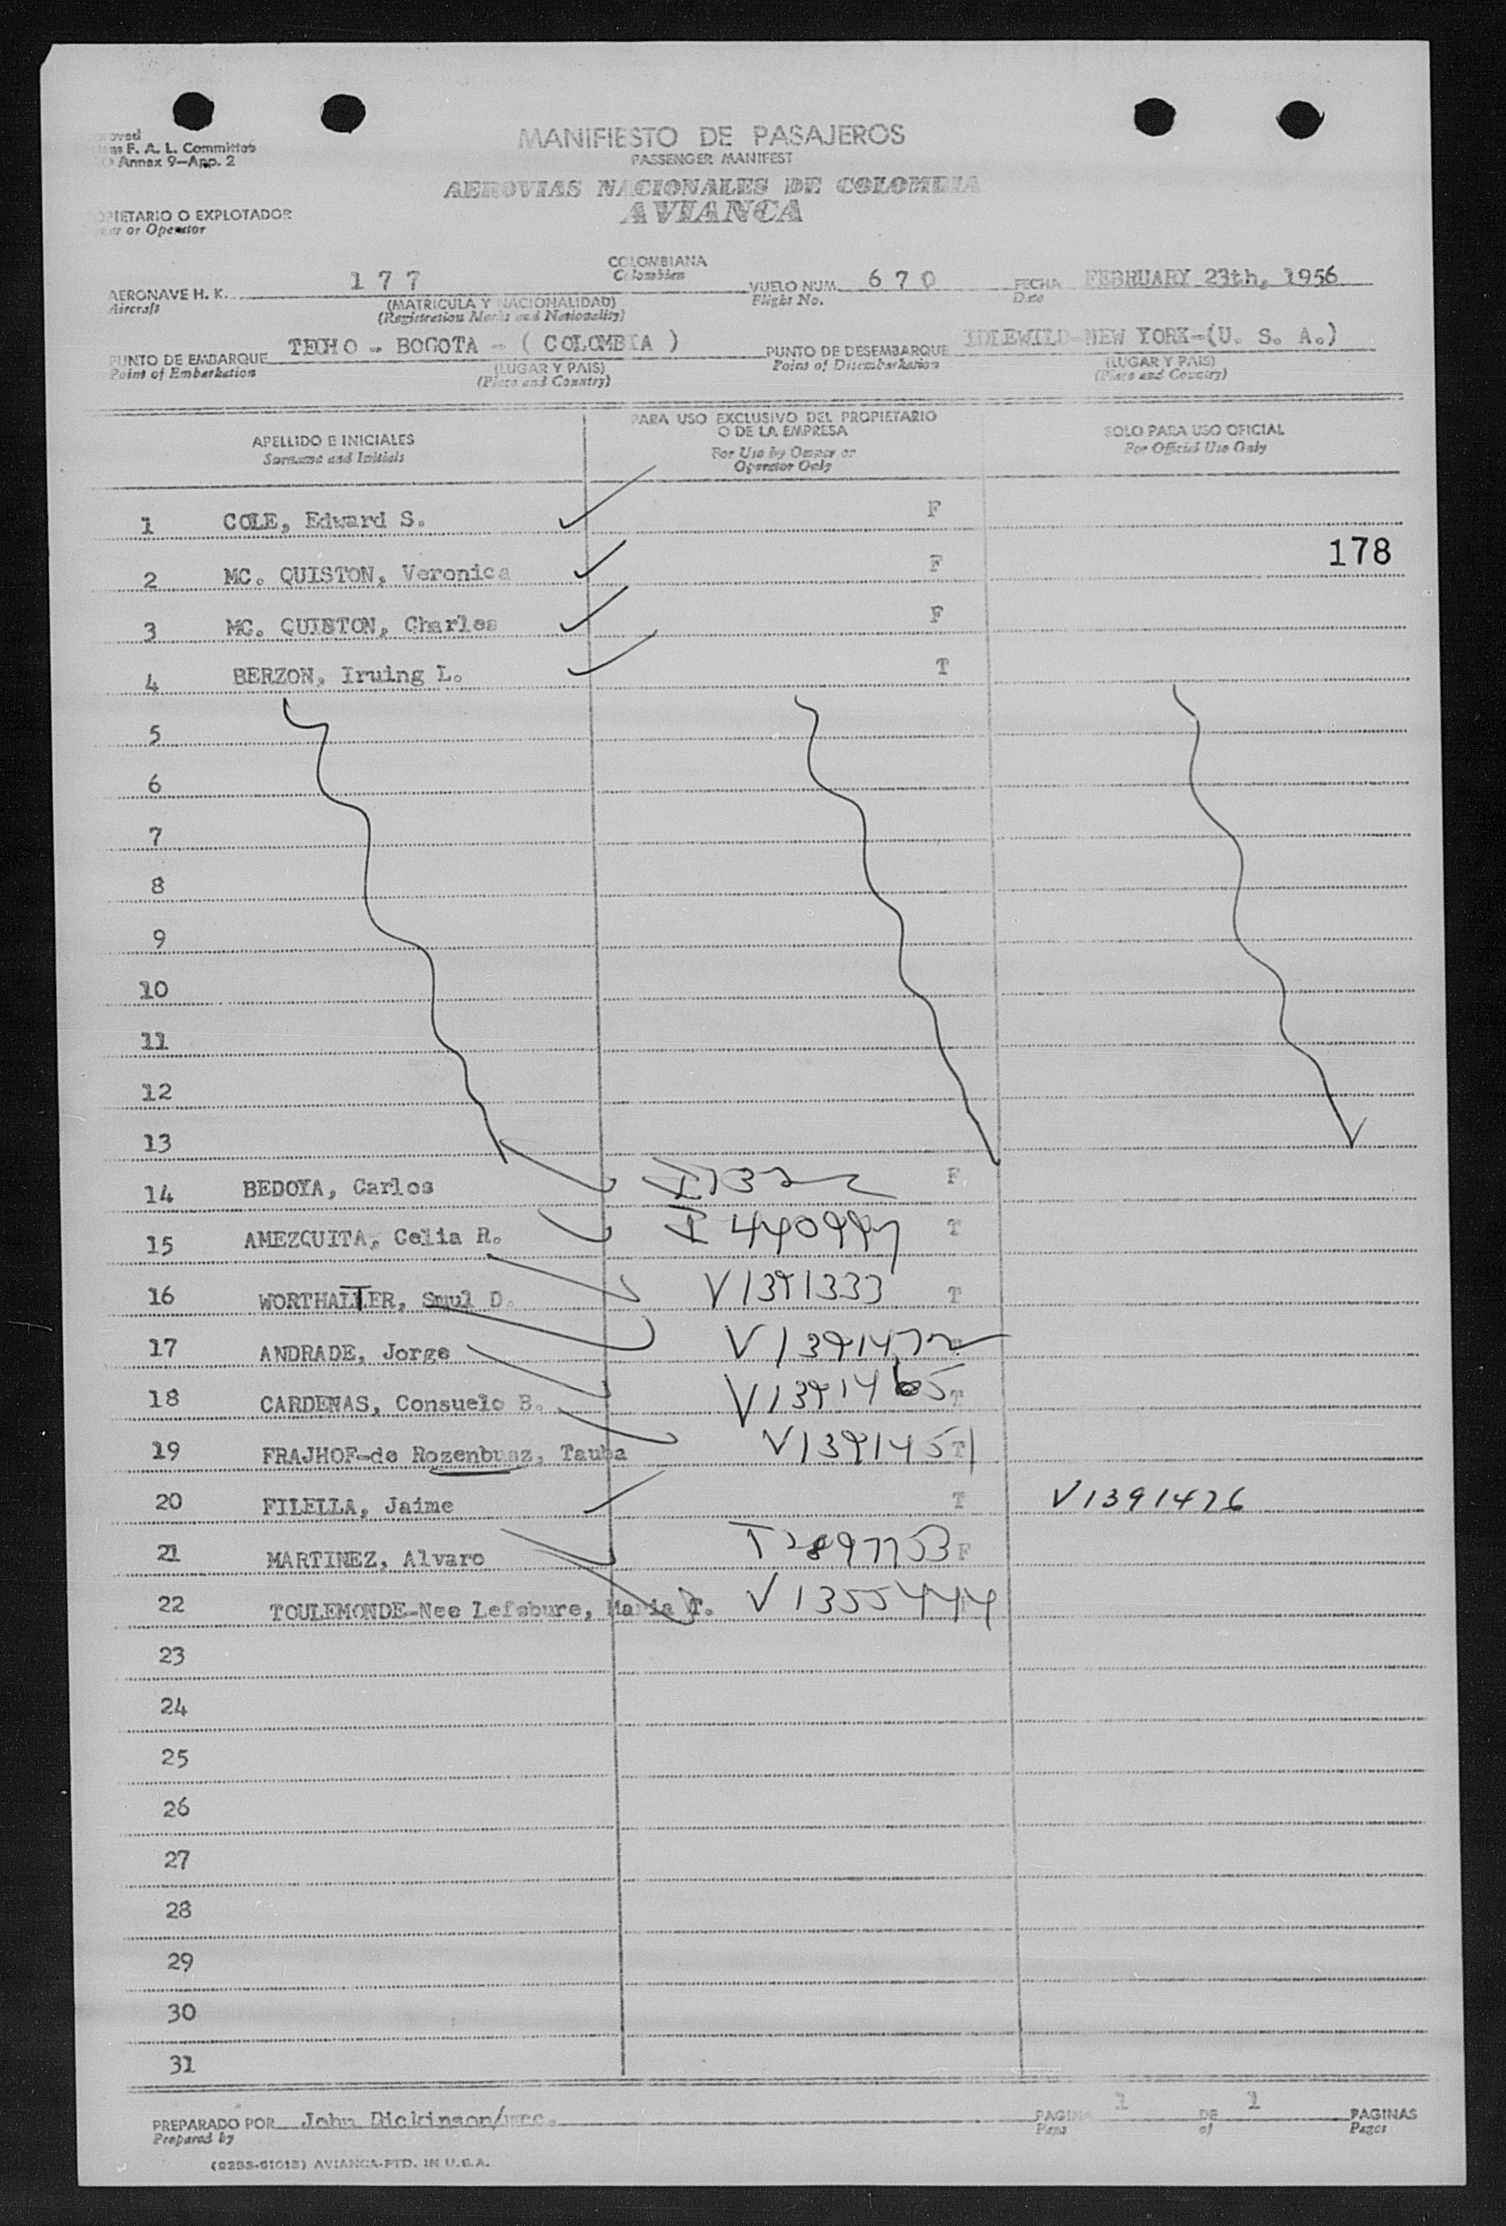 F. A. L. Committee
Annex 9—App. 2
MANIFIESTO DE PASAJEROS
PASSENGER MANIFEST
AEROVIAS NACIONALES DE COLOMBIA
AVIANCA
O EXPLOTADOR
or Operator
AERONAVE H. K. 177 COLOMBIANA VUELO NUM. 670 FECHA FEBRUARY 23th, 1956
Aircraft (MATRICULA Y NACIONALIDAD) Colombian Flight No. Date
(Registration Marks and Nationality)
PUNTO DE EMBARQUE TECHO - BOGOTA - ( COLOMBIA ) PUNTO DE DESEMBARQUE IDLEWILD-NEW YORK-(U. S. A.)
Point of Embarkation (LUGAR Y PAIS) Point of Disembarkation (LUGAR Y PAIS)
(Place and Country) (Place and Country)
APELLIDO E INICIALES PARA USO EXCLUSIVO DEL PROPIETARIO O DE LA EMPRESA SOLO PARA USO OFICIAL
Surname and Initials For Use by Owner or Operator Only For Official Use Only
1 COLE, Edward S. F
178
2 MC. QUISTON, Veronica F
3 MC. QUISTON, Charles F
4 BERZON, Iruing L. T
5
6
7
8
9
10
11
12
13
14 BEDOYA, Carlos F
15 AMEZQUITA, Celia R. T
16 WORTHALTER, Smul D. V1391333 T
17 ANDRADE, Jorge V1391472
18 CARDENAS, Consuelo B. V1391465 T
19 FRAJHOF-de Rozenbusz, Tauba V1391451 T
20 FILELLA, Jaime T V1391476
21 MARTINEZ, Alvaro T2897753 F
22 TOULEMONDE-Nee Lefebure, Maria T. V1355444
23
24
25
26
27
28
29
30
31
PREPARADO POR John Dickinson/ PAGINA 1 DE 1 PAGINAS
Prepared by Page of Pages
AVIANCA-PTD. IN U.S.A.